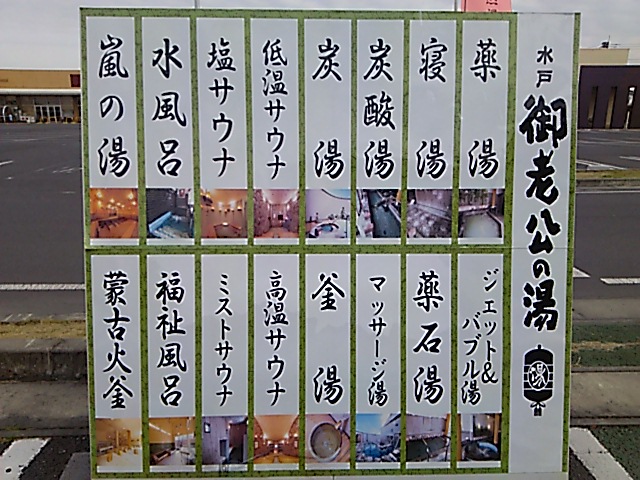 水戸 御老公の湯
湯
薬湯
寝湯
炭酸湯
炭湯
低温サウナ
塩サウナ
水風呂
嵐の湯
ジェット&
バブル湯
薬石湯
マッサージ湯
釜湯
高温サウナ
ミストサウナ
福祉風呂
蒙古火釜